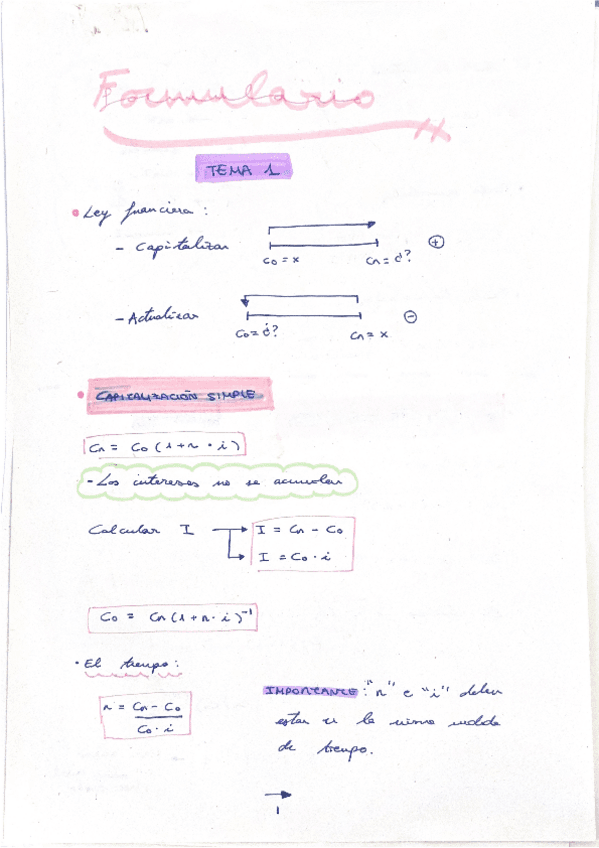 Formulario
TEMA 1
• Ley financiera :
- Capitalizar
C₀ = x Cn = ¿?
+
- Actualizar
C₀ = ¿? Cn = x
-
• CAPITALIZACIÓN SIMPLE
Cn = C₀ (1 + n · i)
- Los intereses no se acumulan
Calcular I → I = Cn - C₀
→ I = C₀ · i
C₀ = Cn (1 + n · i)⁻¹
• El tiempo :
n = Cn - C₀
C₀ · i
IMPORTANTE : "n" e "i" deben
estar en la misma medida
de tiempo.
→
1